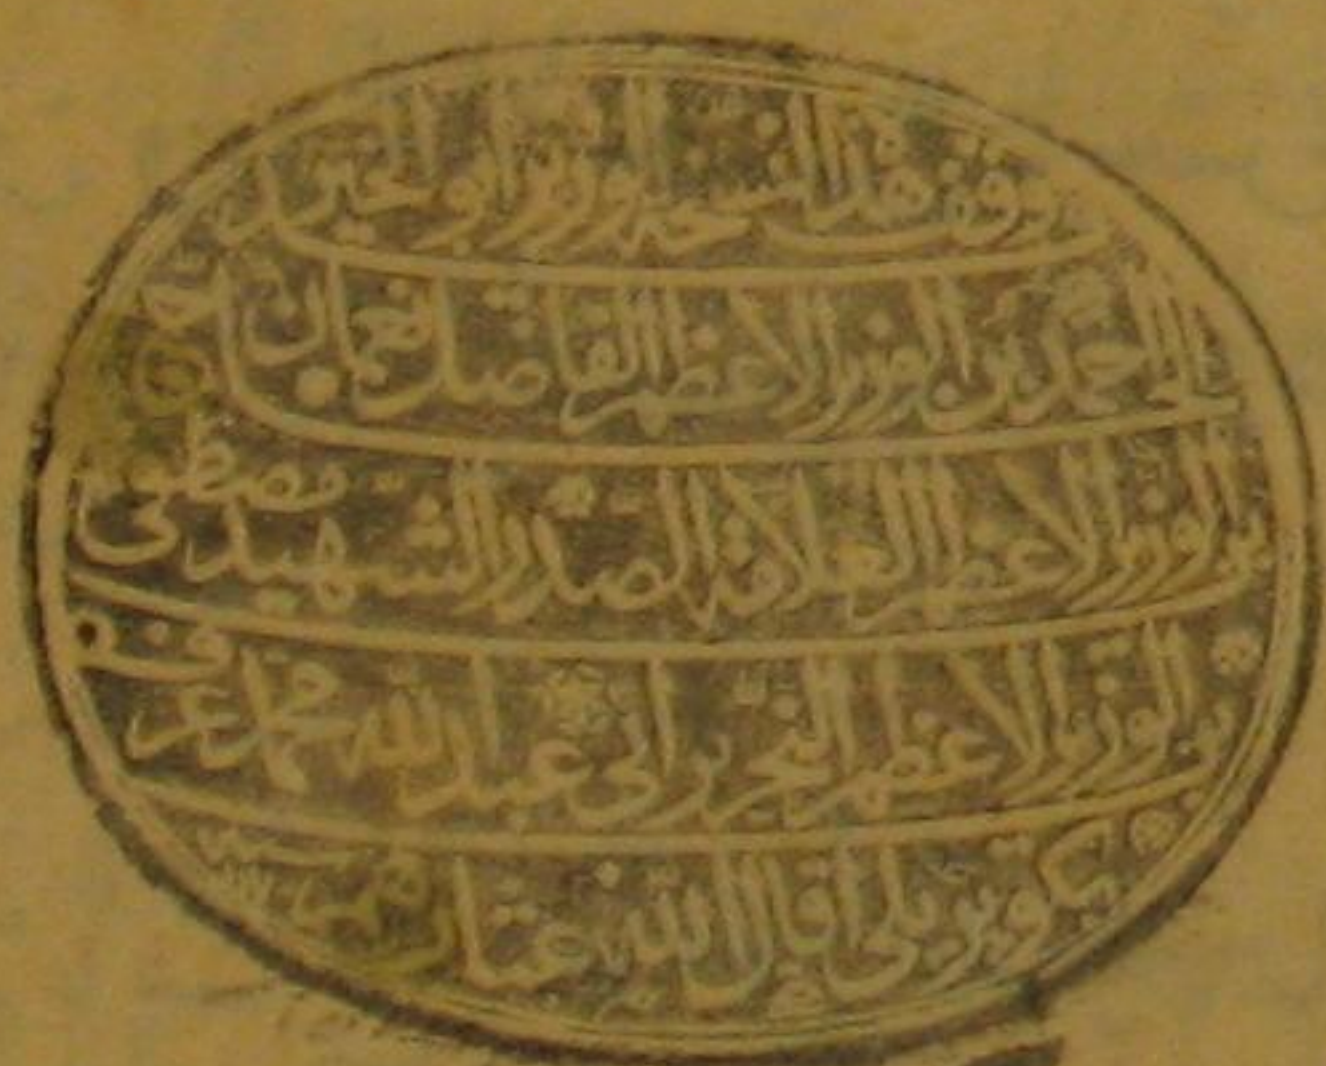 وقف هذه النسخة الوزير ابو الخير
الحاج احمد بن الوزير الاعظم الفاضل نعمان
بن الوزير الاعظم العلامة الصدر الشهيد مصطفى
بن الوزير الاعظم النحرير ابى عبد الله محمد عرف
بكوپريلى اقال الله عثارهما